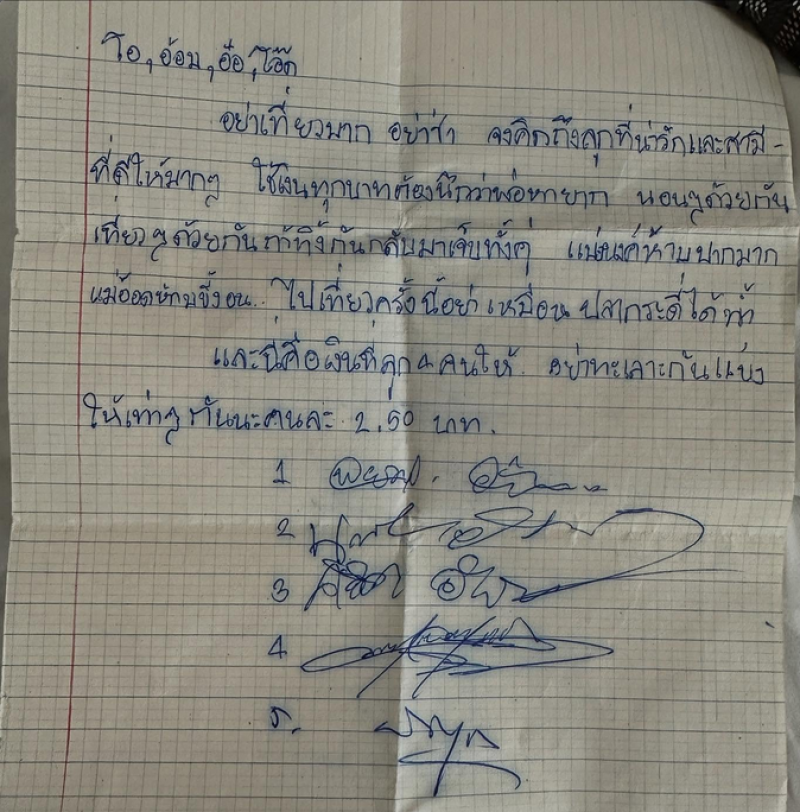 โอ, อ้อม, อ้อ, โอ๊ด
อย่าเที่ยวมาก อย่าช้า จงคิดถึงลูกที่น่ารักและสามี -
ที่ดีให้มากๆ ใช้เงินทุกบาทต้องนึกว่าพ่อหายาก นอนๆด้วยกัน
เที่ยวๆด้วยกันถ้าทิ้งกันกลับมาเจ็บทั้งคู่ ห้ามปากมาก
แม่อ๊อดห้ามขี้งอน.. ไปเที่ยวครั้งนี้อย่าเหมือนปลากระดี่ได้น้ำ
และนี่คือเงินที่ลูก 4 คนให้ อย่าทะเลาะกันแบ่ง
ให้เท่าๆกันนะคนละ 2.50 บาท.
1
2
3
4
5.